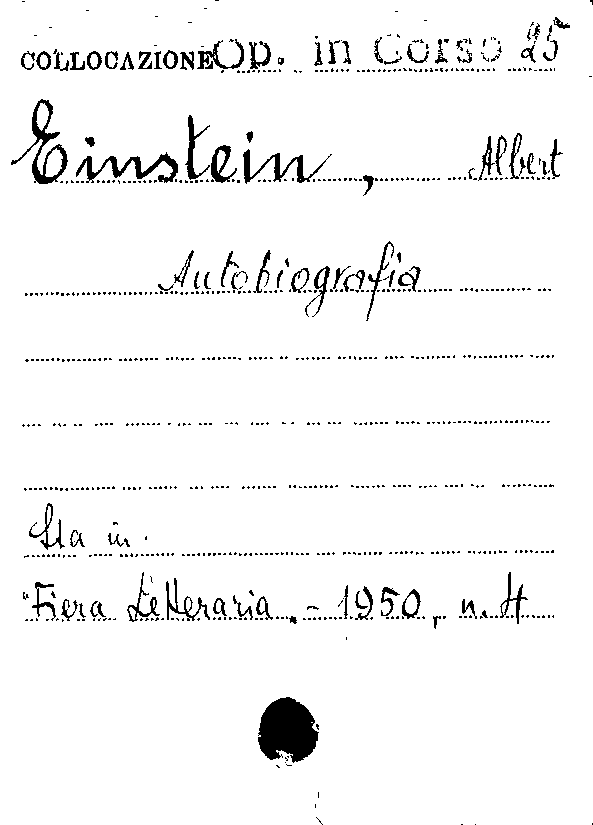 COLLOCAZIONE Op. in Corso 25
Einstein, Albert
Autobiografia
Sta in.
"Fiera Letteraria. - 1950, n. 4